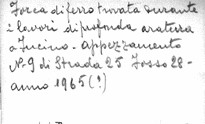 Forca di ferro trovata durante
i lavori di profonda aratura
a Fucino - Appezzamento
N. 9 di Strada 25 Fosso 28 -
anno 1965 (?)